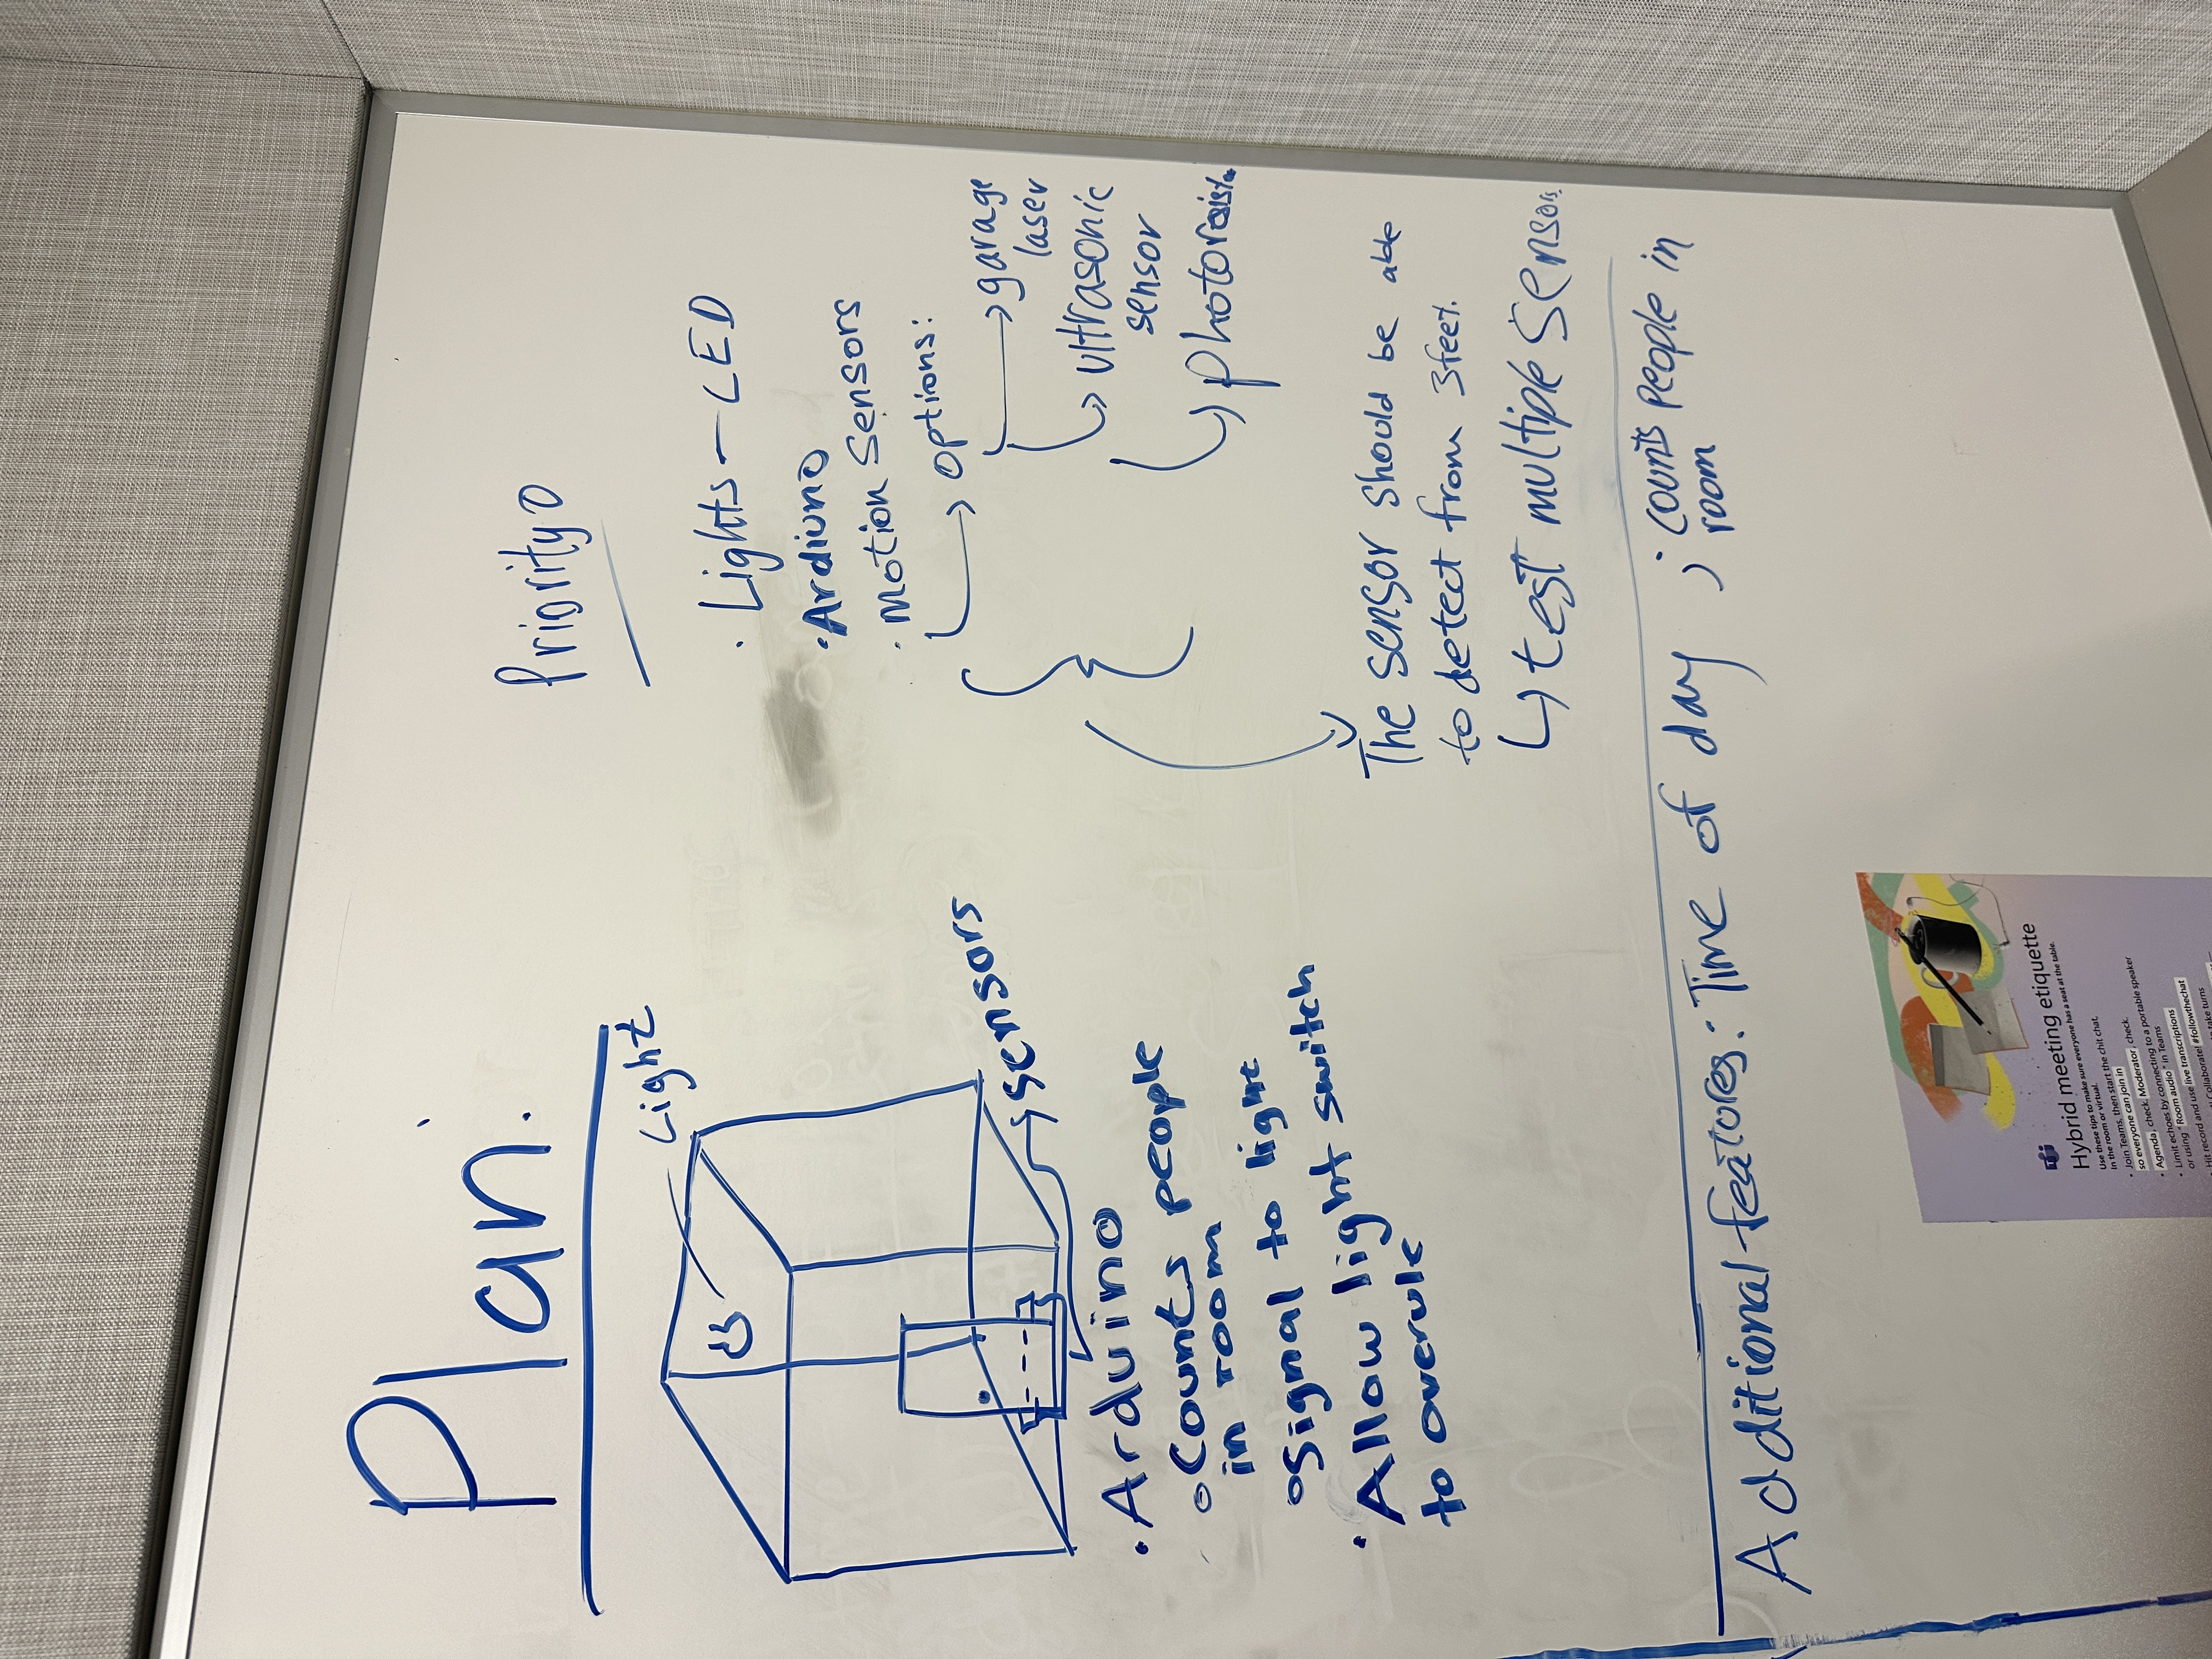 Plan:
Light
sensors
• Arduino
o Counts people
in room
o signal to light
• Allow light switch
to overrule
Priority
• Lights - LED
• Ardiuno
• Motion Sensors
→ options:
→ garage
laser
→ ultrasonic
sensor
The sensor should be able
to detect from 3feet.
↳ test multiple
Additional features: Time of day ; • counts people in
room
Hybrid meeting etiquette
Use these tips to make sure everyone has a seat at the table.
In the room or virtual.
• Join Teams, then start the chit chat,
so everyone can join in
• Agenda, check. Moderator, check.
• Limit echoes by connecting to a portable speaker
or using "Room audio" in Teams
• Hit record and use live transcriptions